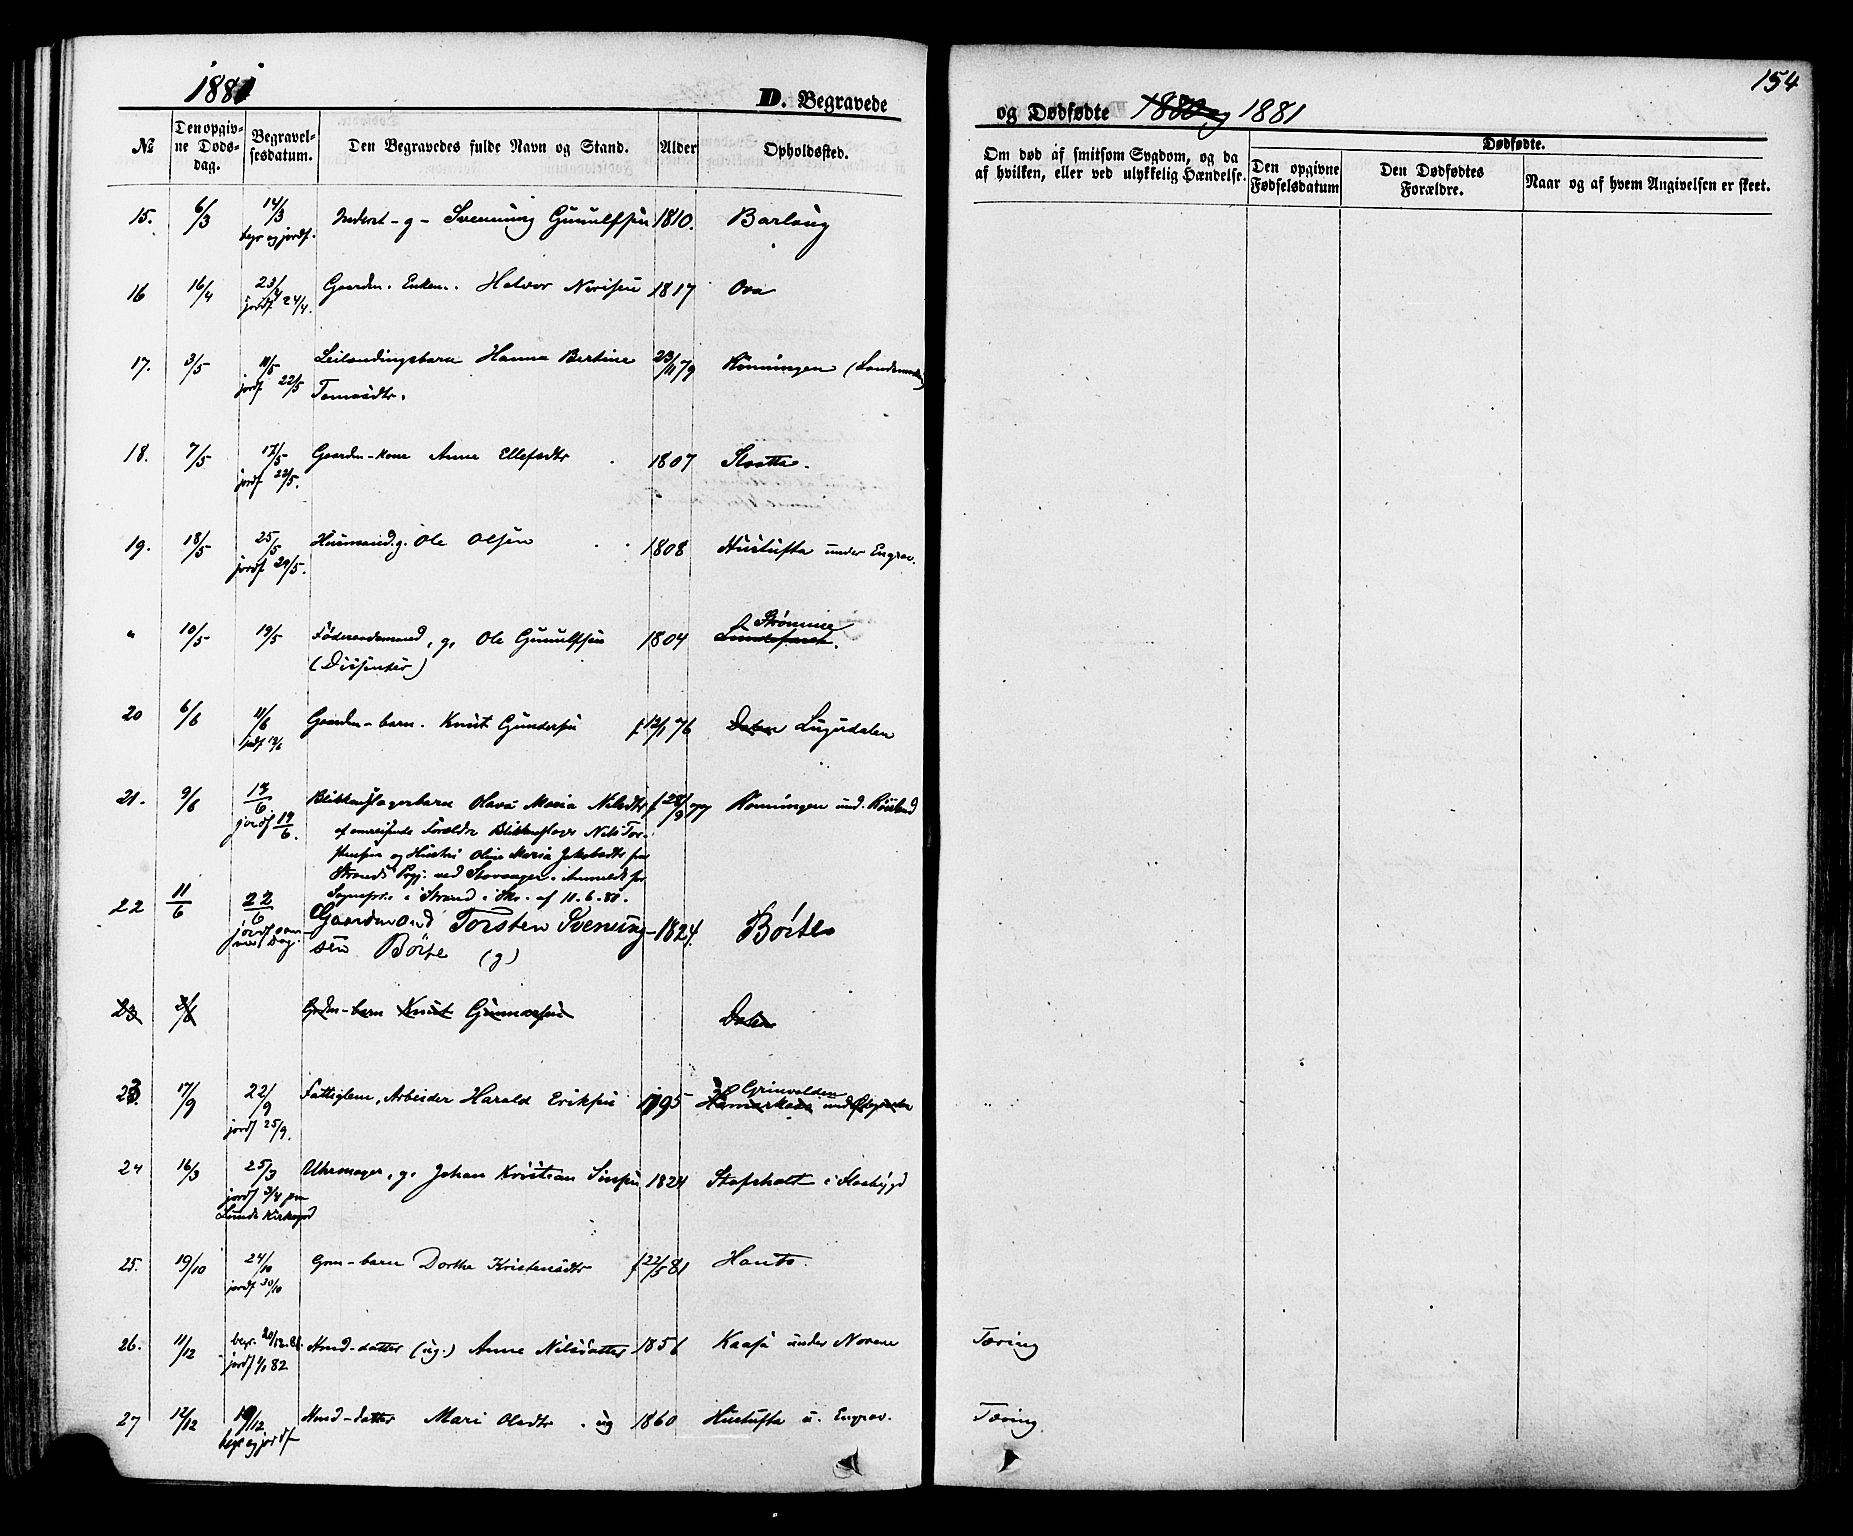 1881
D. Begravede
og Dødfødte 1880 og 1881
154
№
Den opgiv-
ne Døds-
dag.
Begravel-
sesdatum.
Den Begravedes fulde Navn og Stand.
Alder
Opholdssted.
Om død af smitsom Sygdom, og da
af hvilken, eller ved ulykkelig Hændelse.
Dødfødte.
Den opgivne
Fødselsdatum
Den Dødfødtes
Forældre.
Naar og af hvem Angivelsen er skeet.
15. 6/3 14/3 Inderst -g- Svennung Gunulfsen 1810. Barlaug
begr og jordf.
16 16/4 23/4 Gaardm. Enkem. Halvor Nirisen 1817 Ova
jordf 24/4.
17. 3/5 11/5 Leilændingsbarn Hanna Bertine 23/11 79 Rønningen
jordf 22/5 Tomasdtr.
18. 7/5 17/5 Gaardm-kone Anne Ellefsdtr 1807 Slaatta.
jordf 22/5.
19. 18/5 25/5 Husmand.g. Ole Olsen 1808 Hustufta under Engrav.
jordf 29/5.
" 10/5 19/5 Føderaadsmand, g. Ole Gunulfsen 1804 Strømme
(Dissenter)
20 6/6 11/6 Gaardm-barn. Knut Gundersen f 12/1 76 Dalen Lugerdalen
jordf 12/6
21. 9/6 13/6 Blikkenslagerbarn Olava Maria Nilsdtr f 28/9 Rønningen und.
jordf 19/6. af omreisende Forældre Blikkenslager Nils Tor-
stensen og Hustru Oline Maria Jakobsdtr fra
Strands Pgj. ved Stavanger. Anmeldt for
Sognepr. i Strand i Skr. af 11.6.81.
22 11/6 22/6 Gaardmand Torsten Svenung- 1824. Børte
jordf sam-
me Dag. sen Børte (g)
23 Grdm-barn Knut Gunnarsen Dalen
23. 17/9 22/9 Fattiglem, Arbeider Harald Eriksen 1795 Grinvolden
jordf 25/9.
24 16/3 25/3 Uhrmager, g. Johan Kristian 1824 Stafsholt i
jordf 3/4 paa
Lunde Kirkegrd
25. 19/10 24/10 Grm-barn Dorthe Kristensdtr f 22/5 81 Hauto.
jordf 30/10
26. 11/12 begr. 20/12.81. Hmd-datter (ug.) Anne Nilsdatter 1856 Kaasa under Norene Tæring
jordf 1/1 82
27 12/12 19/12 Hmd-datter Mari Olsdtr. ug 1860 Hustufta u. Engrav. Tæring.
begr og jordf